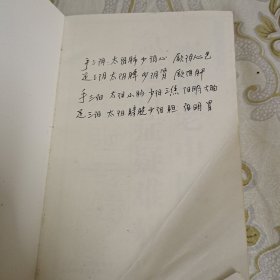 手三阴 太阴肺 少阴心 厥阴心包
足三阴 太阴脾 少阴肾 厥阴肝
手三阳 太阳小肠 少阳三焦 阳明大肠
足三阳 太阳膀胱 少阳胆 阳明胃